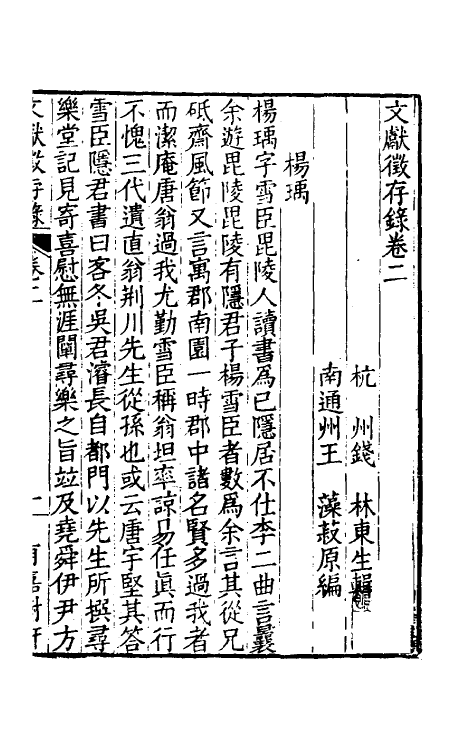 文獻徵存錄卷二
杭州錢林東生輯
南通州王藻菽原編
楊瑀
楊瑀字雪臣毘陵人讀書為己隱居不仕李二曲言曩
余遊毘陵毘陵有隱君子楊雪臣者數為余言其從兄
砥齋風節又言寓郡南園一時郡中諸名賢多過我者
而潔庵唐翁過我尤勤雪臣稱翁坦率諒易任眞而行
不愧三代遺直翁荆川先生從孫也或云唐宇堅其答
雪臣隱君書曰客冬吳君濬長自都門以先生所撰尋
樂堂記見寄喜慰無涯闡尋樂之旨竝及堯舜伊尹方
文獻徵存錄 卷二 一 有嘉樹軒